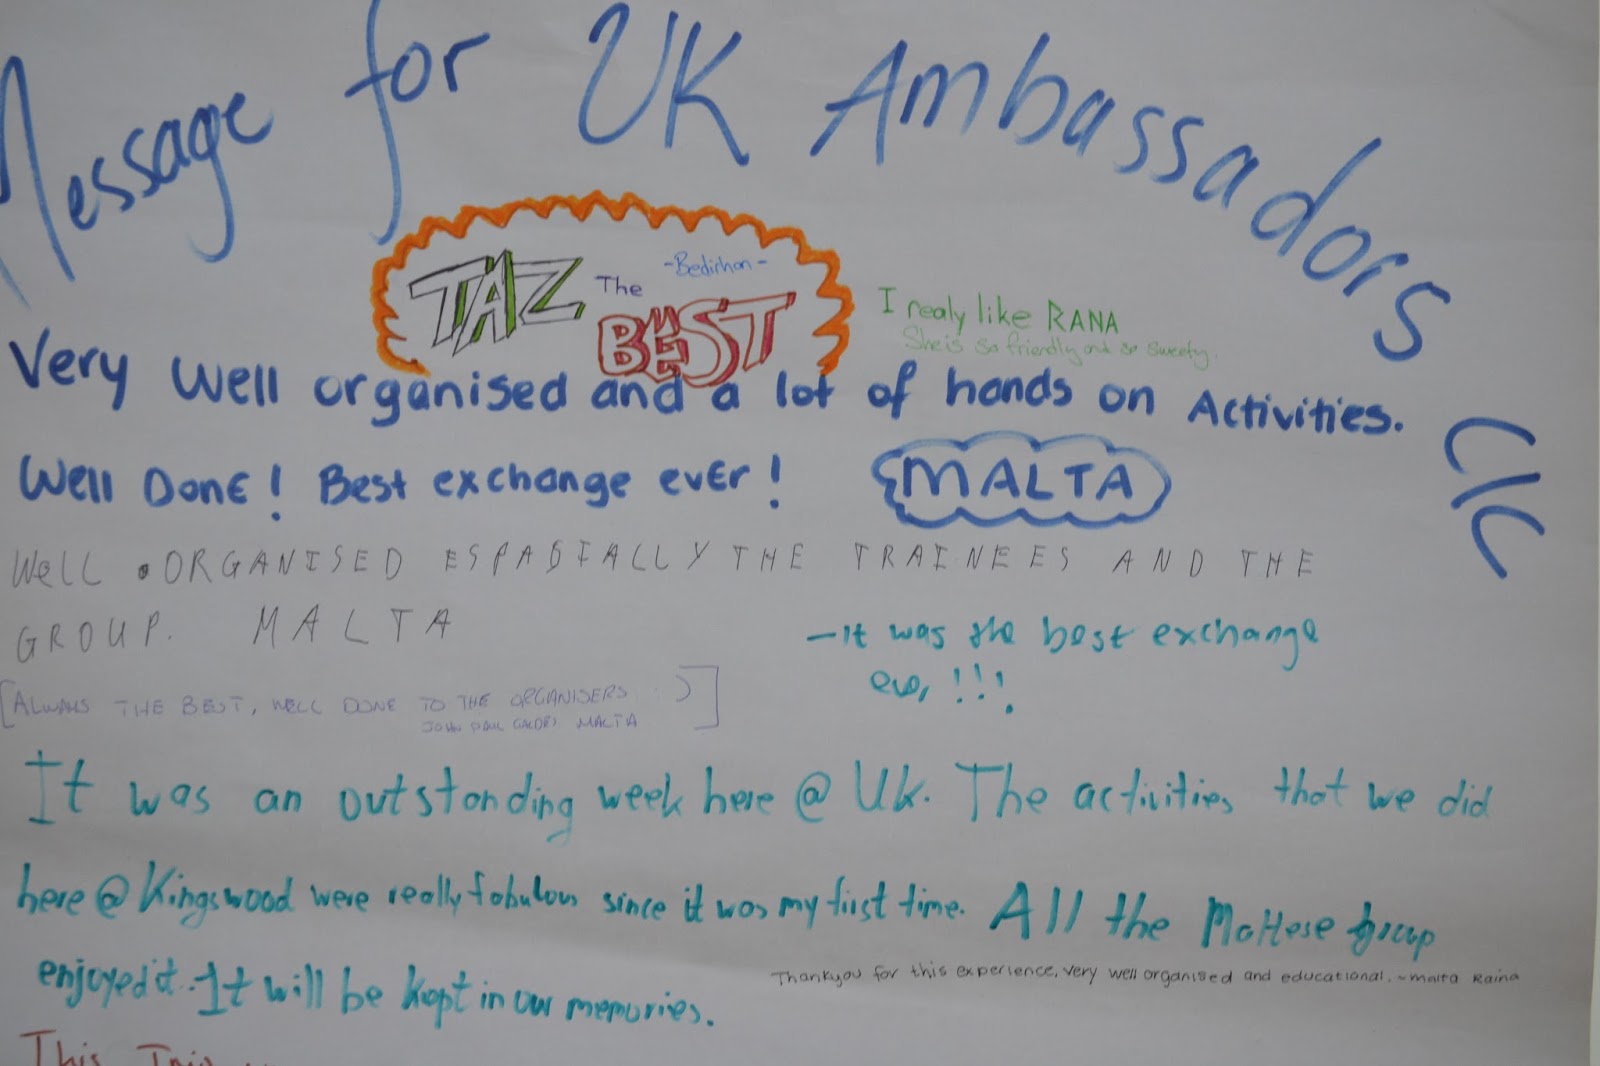 Message for UK Ambassadors
TAZ The BEST
-Bedirhan-
I realy like RANA
She is so friendly and so sweety.
Very well organised and a lot of hands on Activities.
Well Done! Best exchange ever!
MALTA
WELL ORGANISED ESPADIALLY THE TRAINEES AND THE
GROUP. MALTA
-It was the best exchange
!!!
[ALWAYS THE BEST, WELL DONE TO THE ORGANISERS :)]
JOHN PAUL MALTA
It was an outstanding week here @ Uk. The activities that we did
here @ Kingswood were really fabulous since it was my first time. All the Maltese group
enjoyed it. It will be kept in our memories.
Thankyou for this experience, very well organised and educational. ~ Malta Raina
This